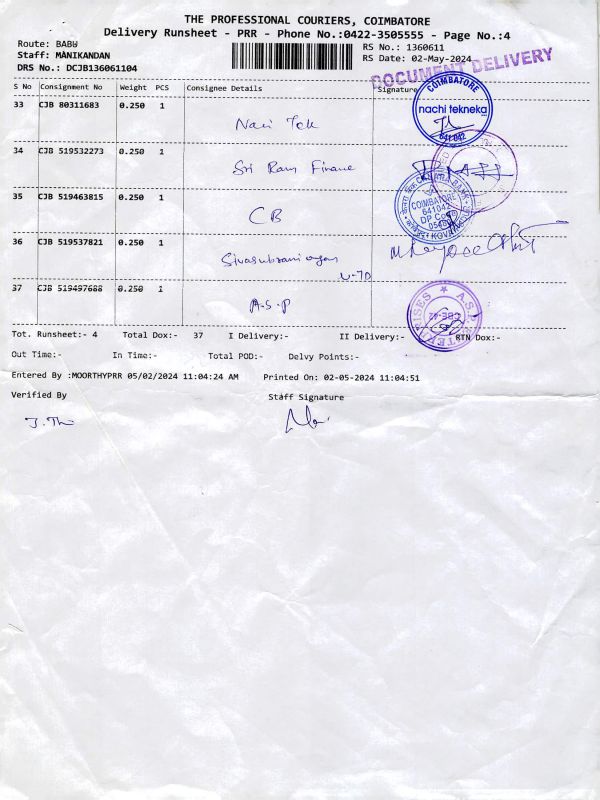 THE PROFESSIONAL COURIERS, COIMBATORE
Delivery Runsheet - PRR - Phone No.:0422-3505555 - Page No.:4
Route: BABU
RS No.: 1360611
Staff: MANIKANDAN
RS Date: 02-May-2024
DRS No.: DCJB136061104
DOCUMENT DELIVERY
S No Consignment No Weight PCS Consignee Details Signature
33 CJB 80311683 0.250 1
COIMBATORE
nachi tekneka
641 042
Navi Tek
34 CJB 519532273 0.250 1
Sri Ram Finance
35 CJB 519463815 0.250 1
CANARA BANK
COIMBATORE
641042
DP Code
CB
36 CJB 519537821 0.250 1
Sivasubramaniyan
37 CJB 519497688 0.250 1
A.S.P
A.S.P
CBE-42
Tot. Runsheet:- 4 Total Dox:- 37 I Delivery:- II Delivery:- RTN Dox:-
Out Time:- In Time:- Total POD:- Delvy Points:-
Entered By :MOORTHYPRR 05/02/2024 11:04:24 AM Printed On: 02-05-2024 11:04:51
Verified By Staff Signature